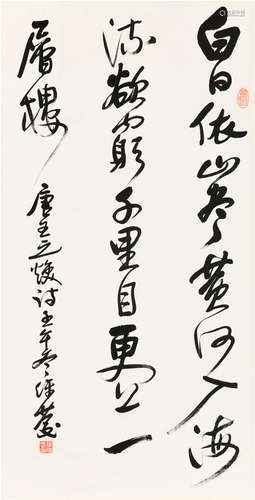 白日依山尽黄河入海
流欲穷千里目更上一
层楼
唐王之焕诗壬午冬